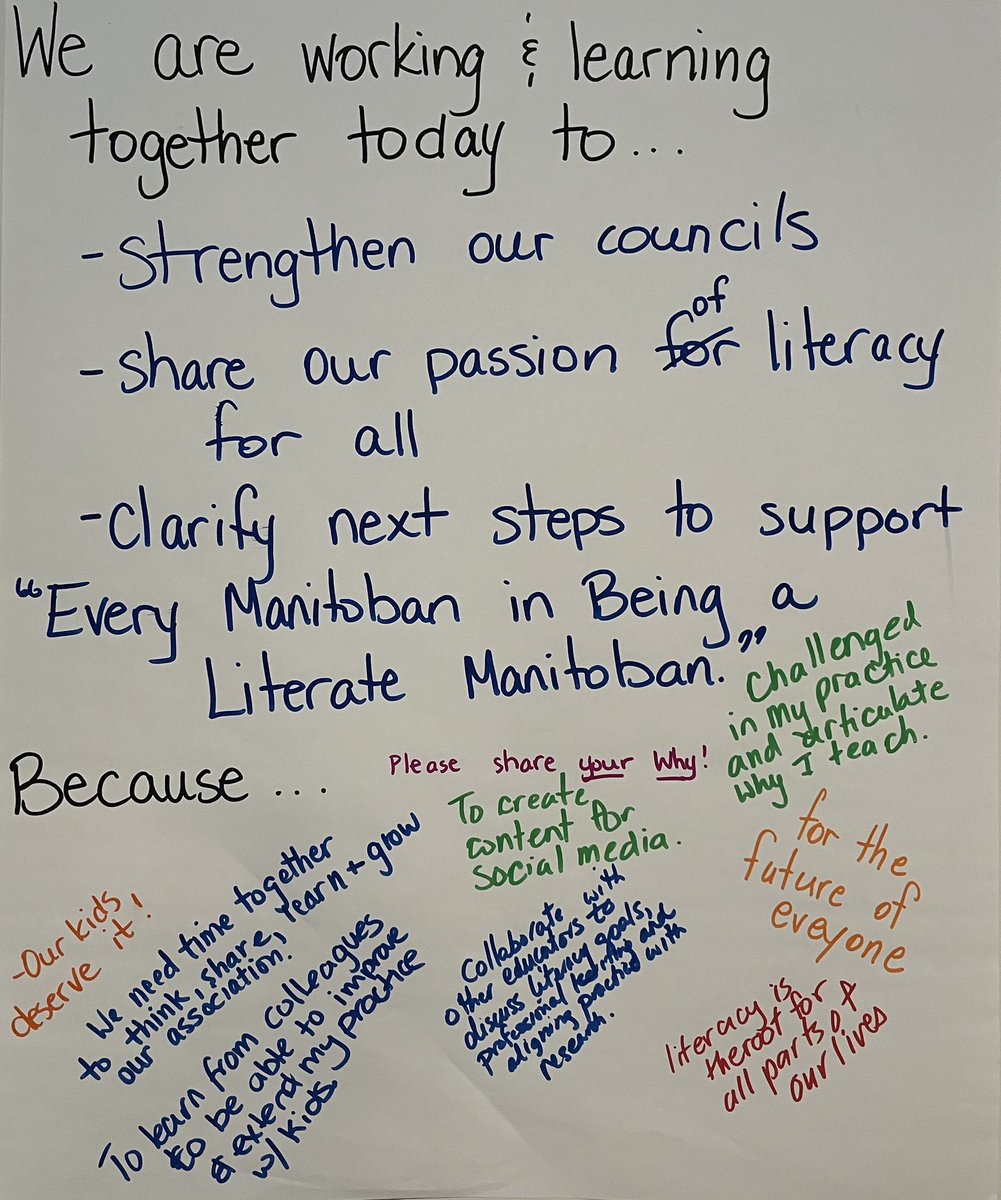 We are working & learning
together today to...
- Strengthen our councils
of
- Share our passion for literacy
for all
- Clarify next steps to support
"Every Manitoban in Being a
Literate Manitoban."
Because...
Please share your Why!
Challenged
in my practice
and articulate
why I teach.
To create
content for
social media.
for the
future of
eveyone
- Our kids
deserve it!
We need time together
to think, share, learn + grow
our association.
To learn from colleagues
to be able to improve
& extend my practice
w/ kids.
Collaborate with
other educators to
discuss literacy goals,
professional learning and
aligning practice with
research.
literacy is
the root for
all parts of
our lives